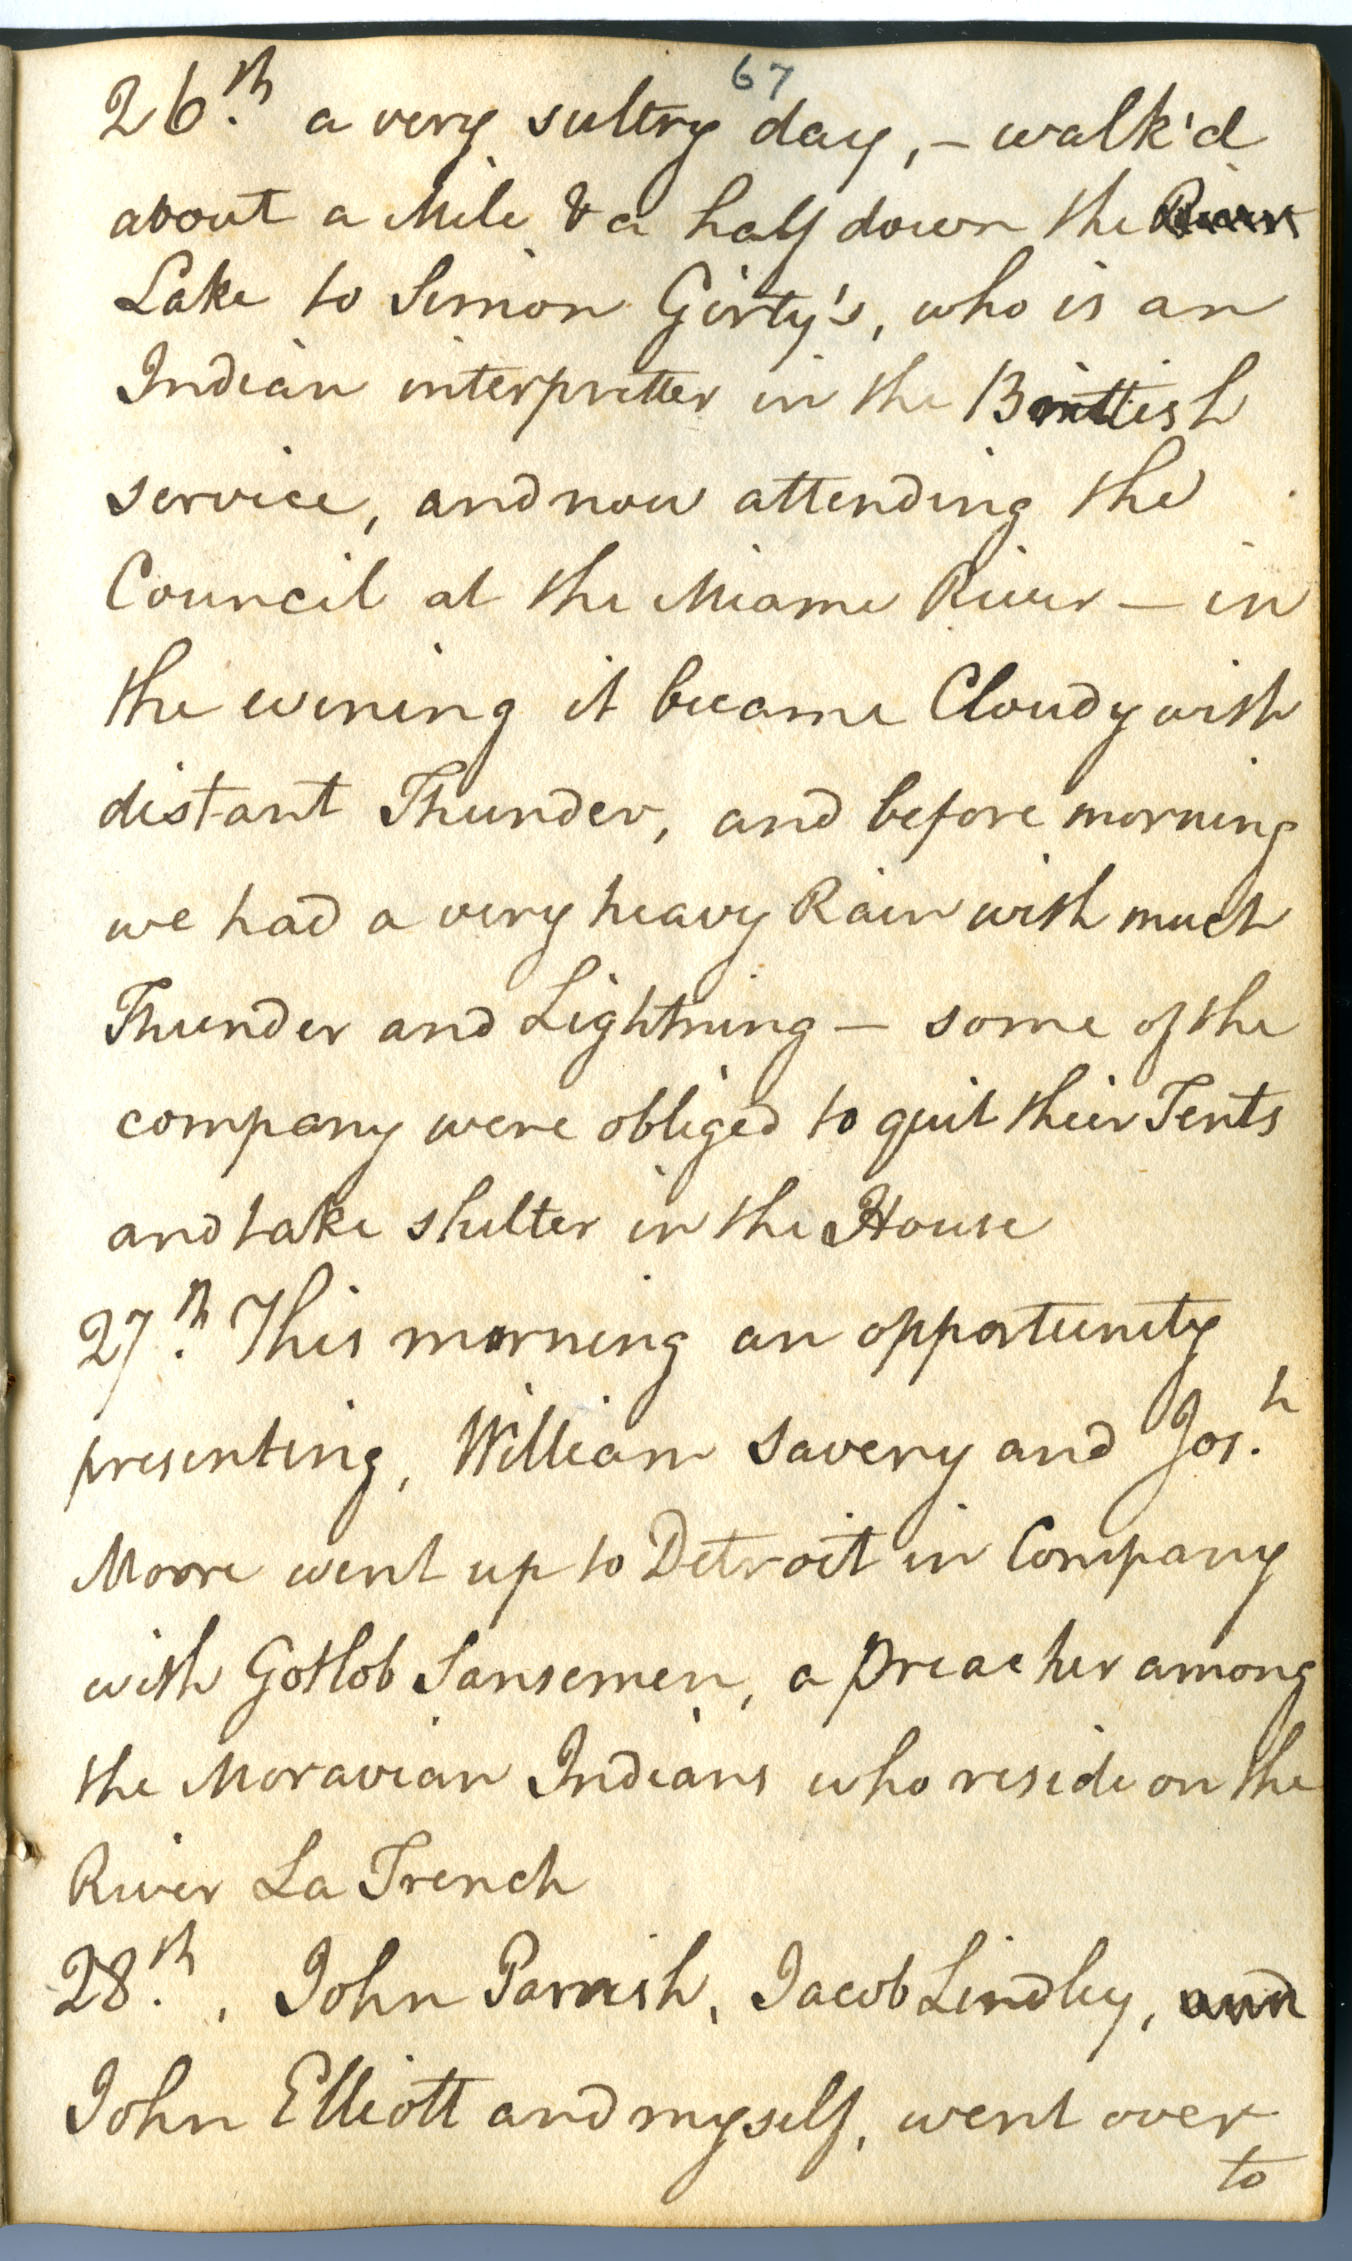 67
26.th a very sultry day, – walk'd
about a Mile & a half down the River
Lake to Simon Girty's, who is an
Indian interpretter in the Brittish
service, and now attending the
Council at the Miame River – in
the evening it became Cloudy with
distant Thunder, and before morning
we had a very heavy Rain with much
Thunder and Lightning – some of the
company were obliged to quit their Tents
and take shelter in the House
27.th This morning an opportunity
presenting, William Savery and Jos.h
Moore went up to Detroit in Company
with Gotlob Sansemen, a preacher among
the Moravian Indians who reside on the
River La Trench
28.th, John Parrish, Jacob Lindley, and
John Elliott and myself, went over
to